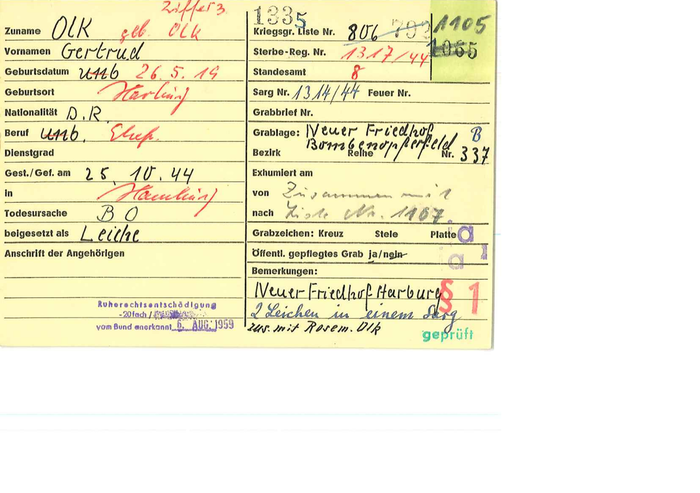 Ziffer 3
Zuname OLK geb. OLK
Vornamen Gertrud
Geburtsdatum unb 26.5.19
Geburtsort Harburg
Nationalität D.R.
Beruf unb. Ehefr.
Dienstgrad
Gest./Gef. am 25. 10. 44
in Hamburg
Todesursache B O
beigesetzt als Leiche
Anschrift der Angehörigen
Ruherechtsentschädigung
-20fach /
vom Bund anerkannt 6. AUG. 1959
1335
Kriegsgr. Liste Nr. 806 1105
Sterbe-Reg. Nr. 1317/44 1065
Standesamt 8
Sarg Nr. 1314/44 Feuer Nr.
Grabbrief Nr.
Grablage: Neuer Friedhof B
Bombenopferfeld
Bezirk Reihe Nr. 337
Exhumiert am
von Zusammen mit
nach Liste Nr. 1107.
Grabzeichen: Kreuz Stele Platte a
Öffentl. gepflegtes Grab ja/nein
a 1
Bemerkungen:
Neuer Friedhof Harburg § 1
2 Leichen in einem Sarg
zus. mit Rosem. Olk
geprüft